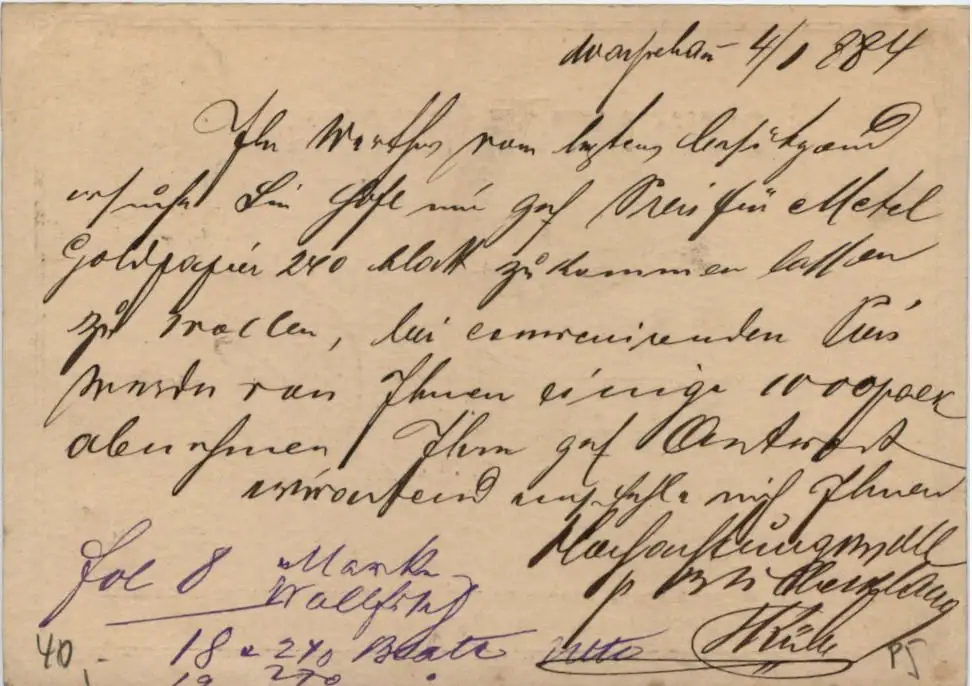 Warschau 4/1 884
Ihr Werthes vom letztens bestätigend
ersuche Sie höfl mir gef Preis für Metel
Goldpapier 240 blatt zukommen lassen
zu wollen, bei convenirenden Preis
werde von Ihnen einige 1000 pack
abnehmen Ihrer gef Antwort
erwartend empfehle mich Ihnen
Hochachtungsvoll
p
fol 8 Mark
18 240 Blatt netto
40,-
19 270